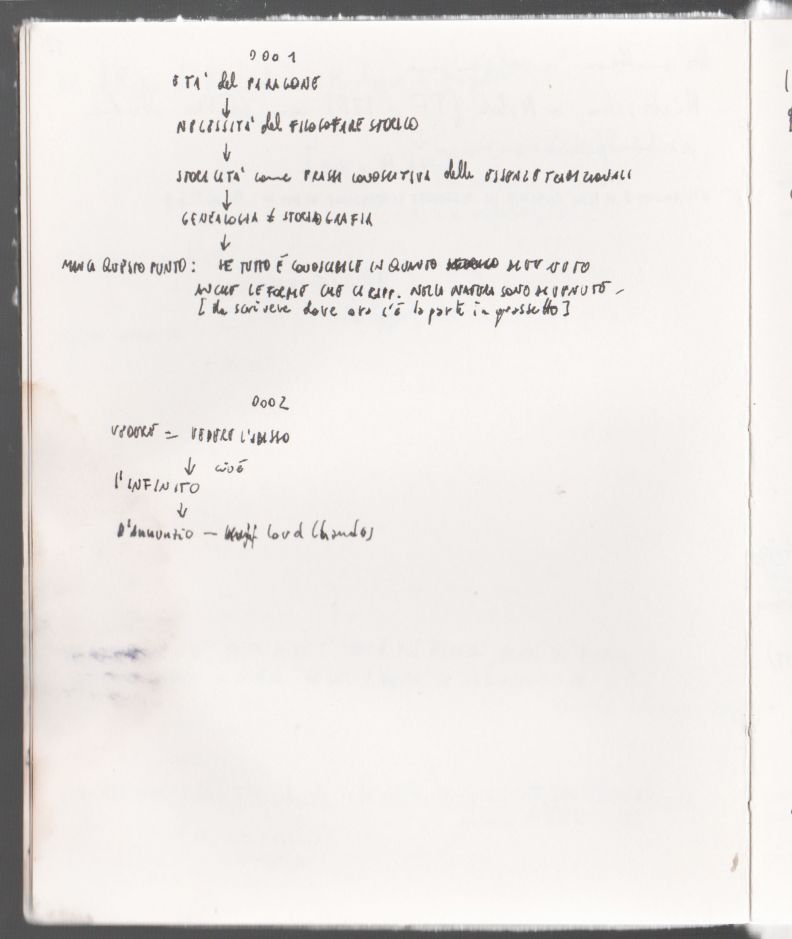 0001
ETA' del PARAGONE
↓
NECESSITA' del FILOSOFARE STORICO
↓
STORICITA' come PRASSI CONOSCITIVA delle ESSENZE TRADIZIONALI
↓
GENEALOGIA ≠ STORIOGRAFIA
↓
MANCA QUESTO PUNTO: SE TUTTO È CONOSCIBILE IN QUANTO DIVENUTO
ANCHE LE FORME CHE CI RAPP. NELLA NATURA SONO DIVENUTE -
[da scrivere dove ora c'è la parte in grassetto]
0002
VEDERE = VEDERE L'ABISSO
↓ cioè
l'INFINITO
↓
D'Annunzio - Lord Chandos